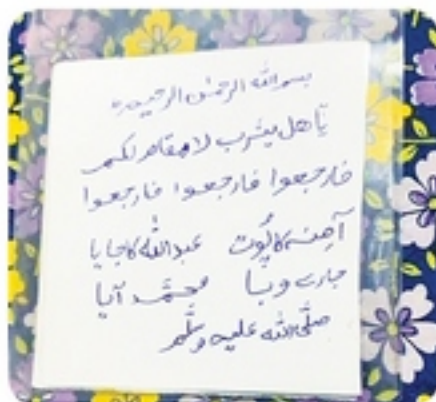 بسم الله الرحمٰن الرحيم
يٰاهل يثرب لا مقام لكم
فارجعوا فارجعوا فارجعوا
آمِنہ کا پُوت عبداللہ کا جایا
جارے وبا محمّد آیا
صلَّی اللہ علیہ وسلَّم